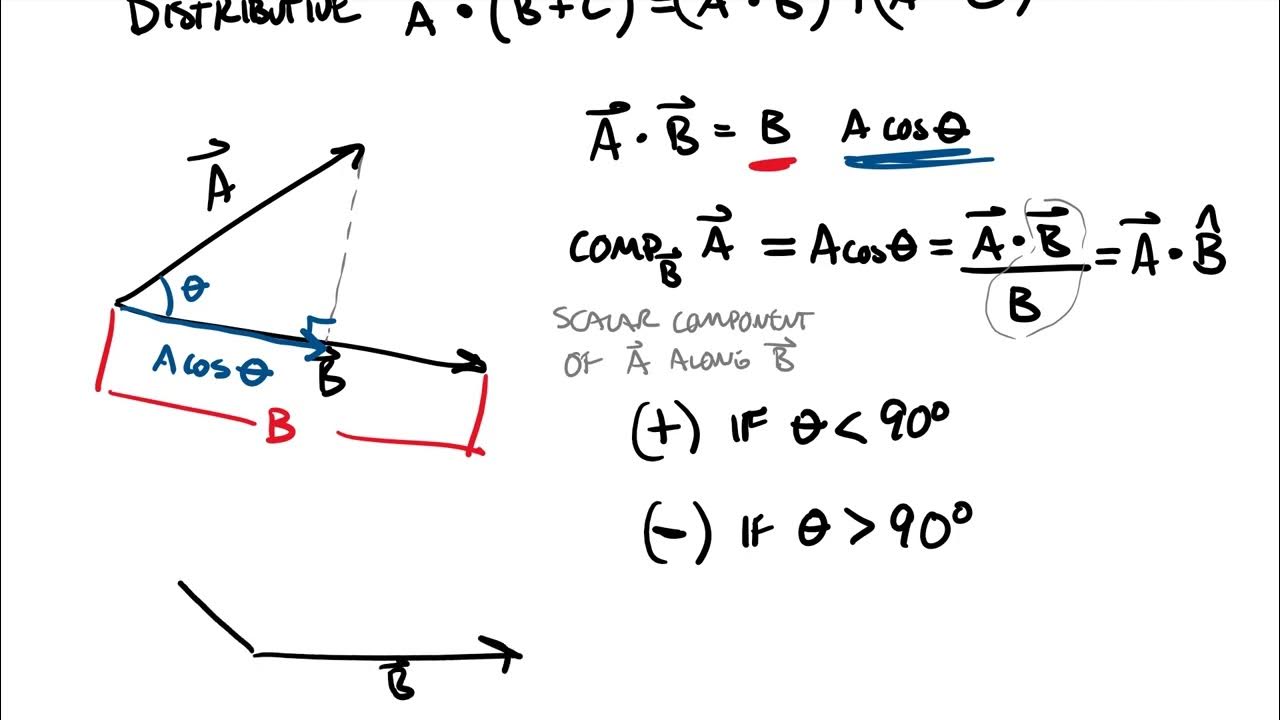 DISTRIBUTIVE A • (B + C) = (A • B) + (A • C)
A⃗ • B⃗ = B A cos θ
A⃗
COMP_B⃗ A⃗ = A cos θ = A⃗ • B⃗ / B = A⃗ • B̂
θ
SCALAR COMPONENT
OF A⃗ ALONG B⃗
A cos θ
B⃗
B
(+) IF θ < 90°
(−) IF θ > 90°
B⃗